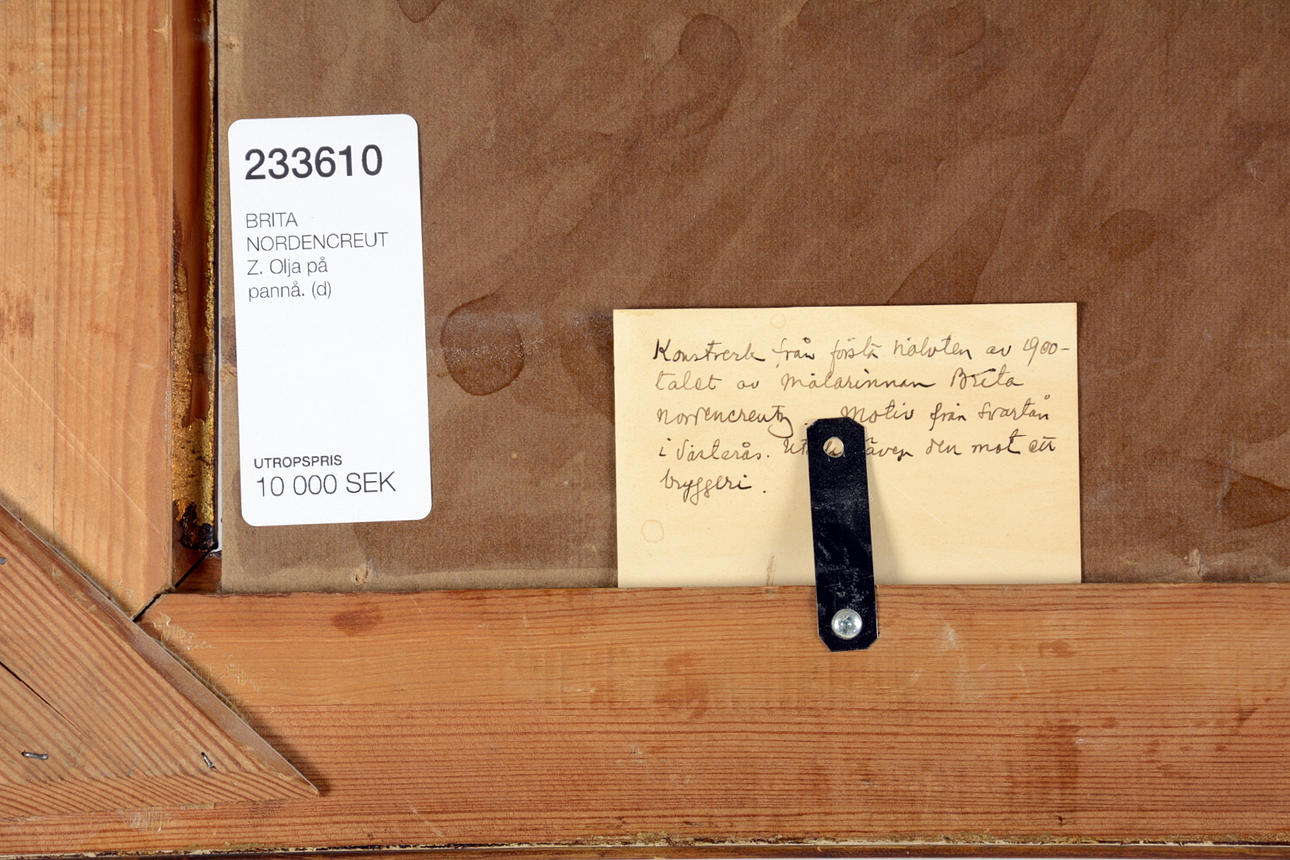 233610
BRITA
NORDENCREUT
Z. Olja på
pannå. (d)
UTROPSPRIS
10 000 SEK
Konstverk från första halvten av 1900-
talet av målarinnan Brita
Nordencreutz. Motiv från Svartån
i Västerås. även den mot ett
bryggeri.